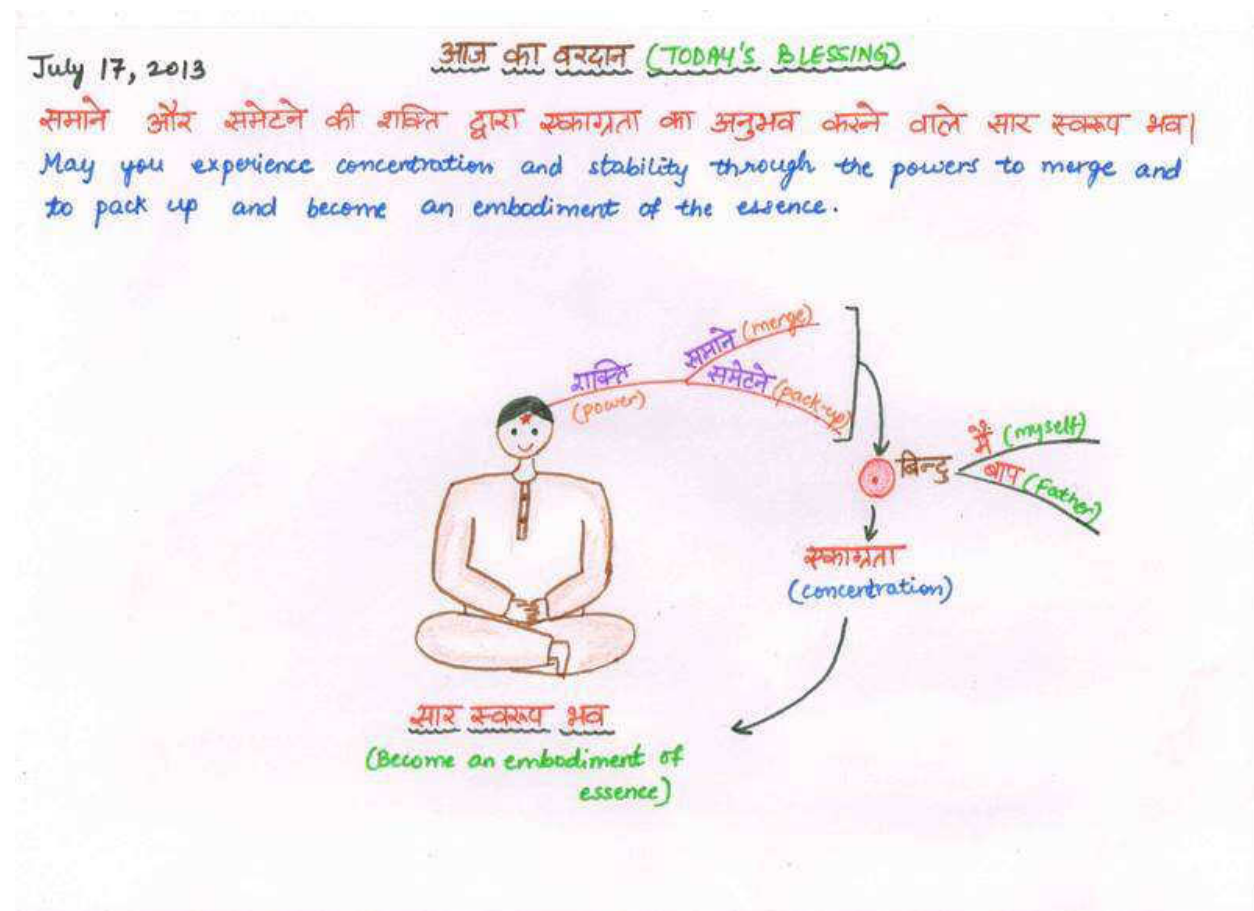 July 17, 2013
आज का वरदान (TODAY'S BLESSING)
समाने और समेटने की शक्ति द्वारा एकाग्रता का अनुभव करने वाले सार स्वरूप भव|
May you experience concentration and stability through the powers to merge and
to pack up and become an embodiment of the essence.
शक्ति
(power)
समाने (merge)
समेटने (pack-up)
बिन्दु
मैं (myself)
बाप (Father)
एकाग्रता
(concentration)
सार स्वरूप भव
(Become an embodiment of
essence)